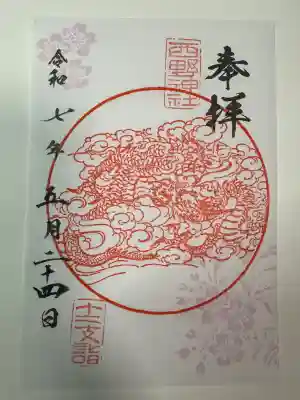 奉拝
西野神社
令和七年五月二十四日
十二支詣